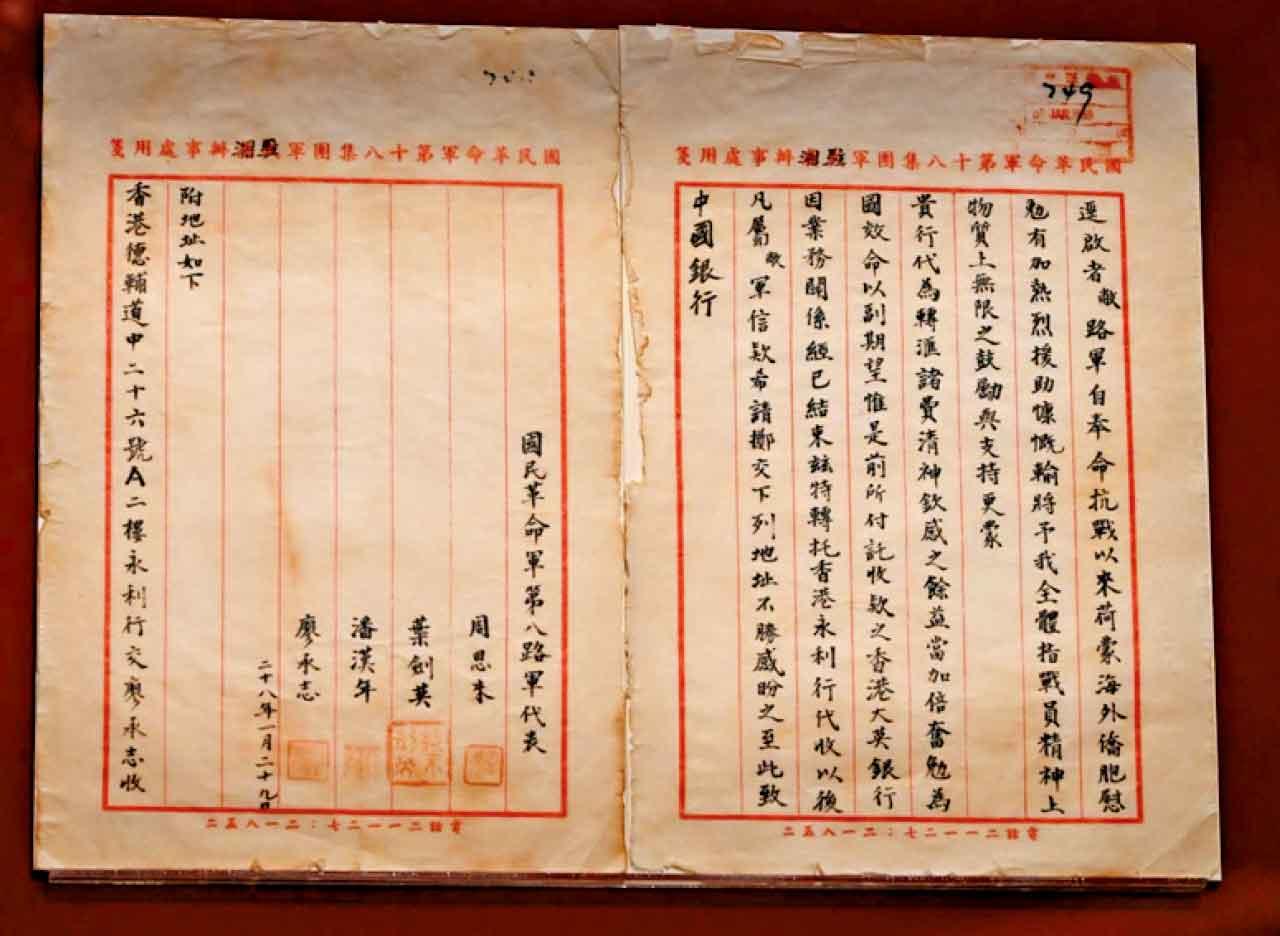 749
國民革命軍第十八集團軍駐湘辦事處用箋
逕啟者敝路軍自奉命抗戰以來荷蒙海外僑胞慰
勉有加熱烈援助慷慨輸將予我全體指戰員精神上
物質上無限之鼓勵與支持更蒙
貴行代為轉滙諸費清神欽感之餘益當加倍奮勉為
國效命以副期望惟是前所付託收款之香港大英銀行
因業務關係經已結束茲特轉托香港永利行代收以後
凡屬敝軍信欵希請擲交下列地址不勝感盼之至此致
中國銀行
電話二一一二七：二一八五二
國民革命軍第十八集團軍駐湘辦事處用箋
國民革命軍第八路軍代表
周恩來
葉劍英
潘漢年
廖承志
二十八年一月二十九日
附地址如下
香港德輔道中二十六號A二樓永利行交廖承志收
電話二一一二七：二一八五二